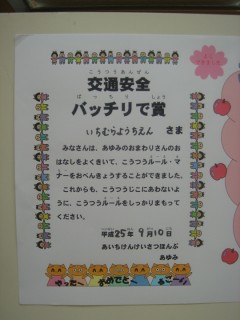 こうつうあんぜん
交通安全
しょう
バッチリで賞
いちむらようちえん さま
みなさんは、あゆみのおまわりさんのお
はなしをよくきいて、こうつうルール・マ
ナーをおべんきょうすることができました。
これからも、こうつうじこにあわないよ
うに、こうつうルールをしっかりまもって
ください。
平成25年 9月10日
あいちけんけいさつほんぶ
あゆみ